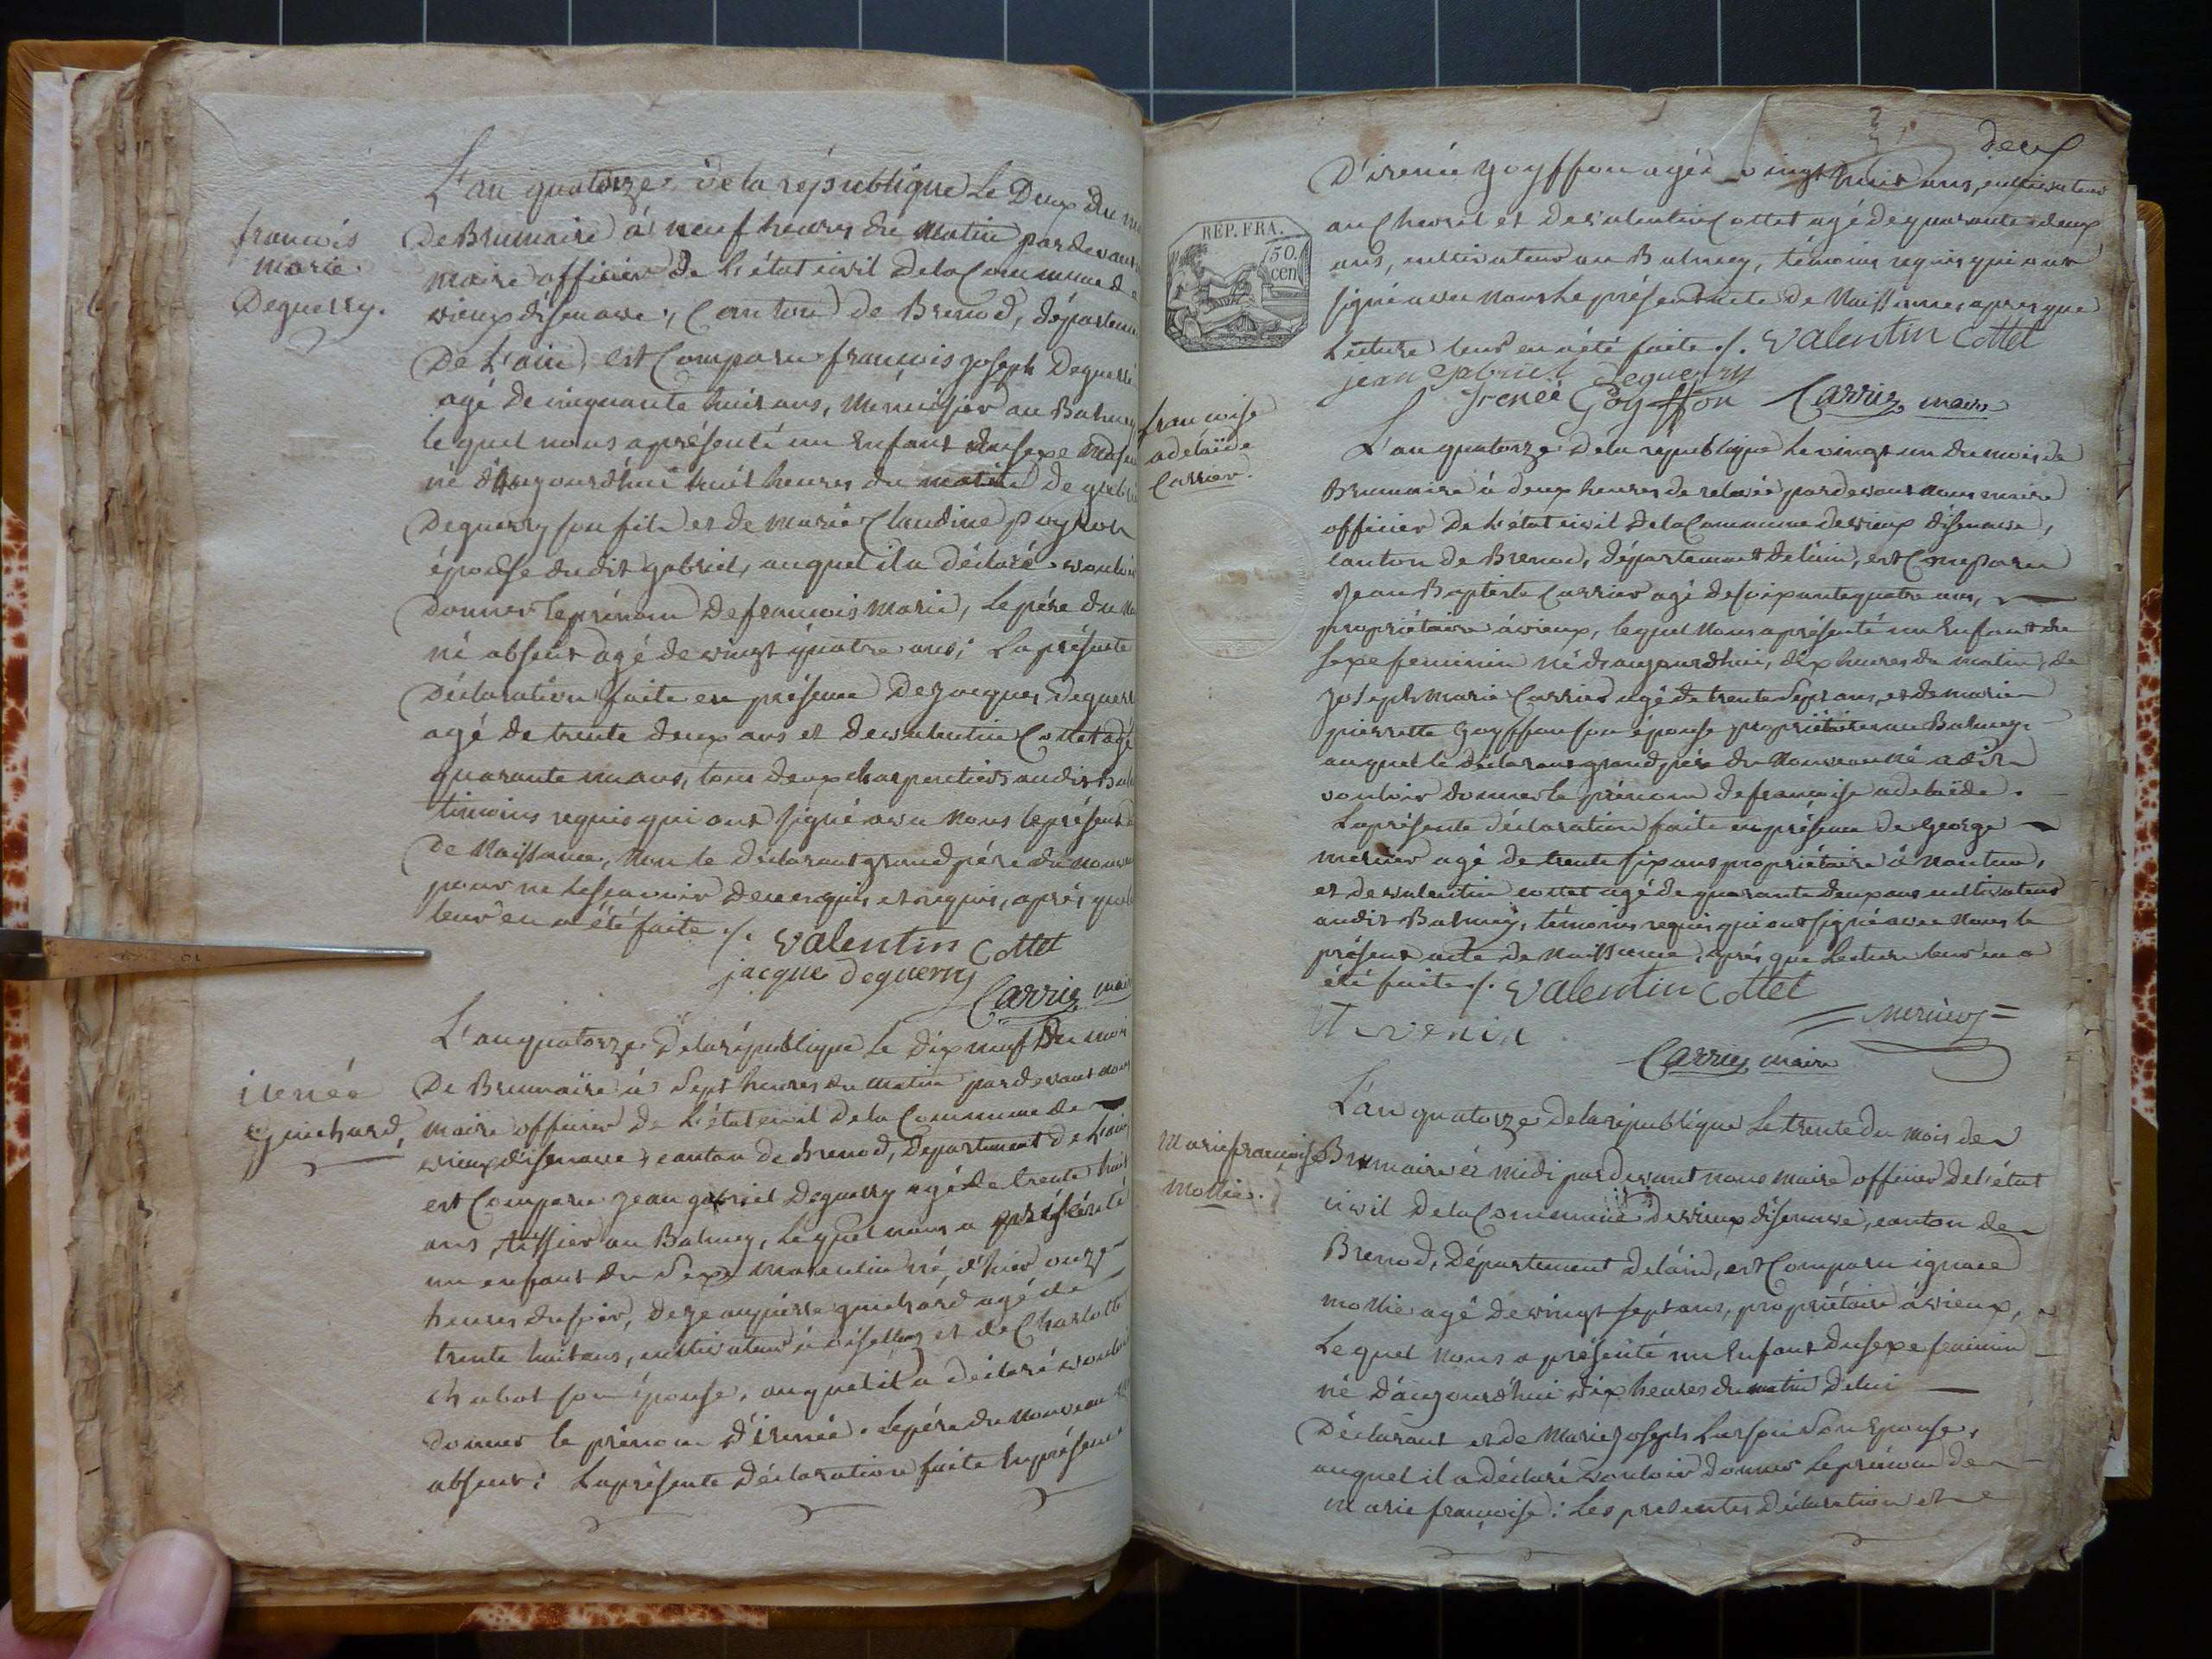 L'an quatorze de la république Le Deux du
francois
marie
Deguerry.
De Brumaire à neuf heures du matin pardevant
maire officier de L'état civil de la Commune de
vieux disenave, Canton de Brenod, départem
De L'ain, est Comparu françois joseph Deguerri
agé de cinquante huit ans, Menuisier au Balmey
lequel nous a présenté un Enfant du sexe mascu
né d'aujourdhui huit heures du matin de gabri
Deguerry son fils et de marie Claudine poysson
épouse dudit gabriel, auquel il a déclaré vouloir
Donner le prénom de francois marie, le pére du
né absent agé de vingt quatre ans; La présente
Déclaration faite en présence De jacques deguerr
agé de trente deux ans et de valentin Cottet agé
quarante un ans, tous deux charpentiers audit Bal
témoins requis qui ont signé avec nous le présent
De Naissance, non le déclarant grand pére du nouv
pour ne le scavoir de ce enquis et requis, après que
leur en a été faite ./. valentin Cottet
jacque deguerry
Carrier mair
L'an quatorze de la république Le dix neuf Du moi
irenée
guichard,
De Brumaire à Sept heures du matin pardevant nous
maire officier de L'état civil de la Commune de
vieux disenave, canton de Brenod, Département de L'ain
est Comparu jean gabriel Deguerry agé de trente huit
ans, tissier au Balmey, Lequel nous a présénté
un enfant du Sexe masculin né, d'hier onze
heures du soir, de jean pierre guichard agé de
trente huit ans, cultivateur à et de Charlotte
chabot son épouse, auquel il a déclaré vouloir
donner le prénom d'irenée. Le pére du nouveau né
absent: La présente déclaration faite En présence
deux
D'irenée goyffon agé de vingt huit ans, cultivateur
au Chevril et de valentin Cottet agé de quarante deux
ans, cultivateur au Balmey, témoins requis qui ont
signé avec nous Le présent acte de Naissance, apres que
Lecture leur en a été faite ./. valentin Cottet
REP. FRA.
50.
cen
jean gabriel deguerry
irenée Goyffon Carrier maire
francoise
adelaïde
Carrier.
L'an quatorze de la république Le vingt un du mois de
Brumaire à deux heures de relevée pardevant nous maire
officier de L'état civil de la Commune de vieux disenave,
canton de Brenod, département de L'ain, est Comparu
Jean Baptiste Carrier agé de soixante quatre ans,
propriétaire à vieux, lequel nous a présenté un Enfant du
sexe feminin né d'aujourdhui, dix heures du matin, de
joseph marie Carrier agé de trente Sept ans, et de marie
pierrette Goyffon son épouse propriétaires au Balmey.
auquel le déclarant grand pére du Nouveau né a dit
vouloir donner le prénom de francoise adelaïde.
La présente déclaration faite en présence de George
mercier agé de trente six ans propriétaire à nantua,
et de valentin cottet agé de quarante deux ans cultivateur
audit Balmey, témoins requis qui ont signé avec nous le
présent acte de Naissance, après que Lecture leur en a
été faite ./. valentin Cottet
mercier
Carrier maire
L'an quatorze de la république Le trente du mois de
Marie françoise
Mollie.
Brumaire à midi pardevant nous maire officier de L'état
civil De la Commune de vieux disenave, canton de
Brenod, Département de L'ain, est Comparu ignace
mollie agé de vingt sept ans, propriétaire à vieux,
Lequel nous a présenté un Enfant du sexe feminin
né d'aujourdhui dix heures du matin De lui
Déclarant et de Marie joseph Son Epouse,
auquel il a déclaré vouloir donner le prénom de
marie françoise: Les présentes déclaration et